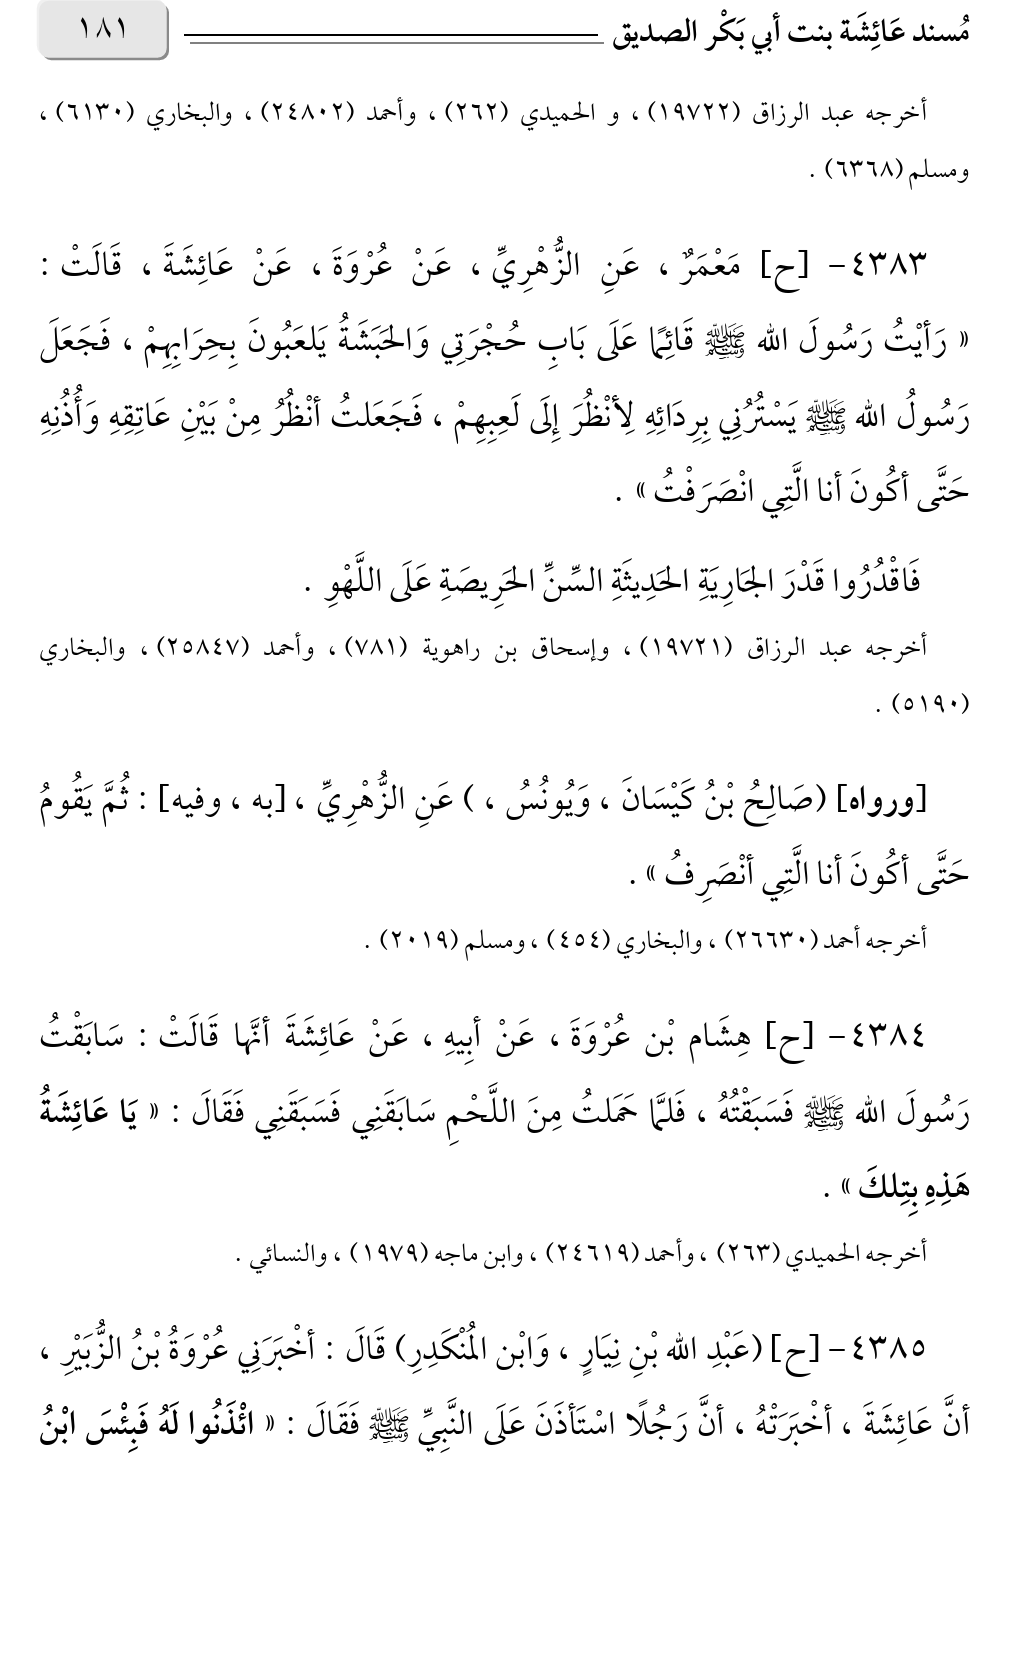 مُسند عَائِشَة بنت أبي بَكْر الصديق ١٨١
أخرجه عبد الرزاق (١٩٧٢٢) ، و الحميدي (٢٦٢) ، وأحمد (٢٤٨٠٢) ، والبخاري (٦١٣٠) ،
ومسلم (٦٣٦٨) .
٤٣٨٣- [ح] مَعْمَرٌ ، عَنِ الزُّهْرِيِّ ، عَنْ عُرْوَةَ ، عَنْ عَائِشَةَ ، قَالَتْ :
« رَأيْتُ رَسُولَ الله ﷺ قَائِمًا عَلَى بَابِ حُجْرَتِي وَالحَبَشَةُ يَلعَبُونَ بِحِرَابِهِمْ ، فَجَعَلَ
رَسُولُ الله ﷺ يَسْتُرُنِي بِرِدَائِهِ لِأنْظُرَ إِلَى لَعِبِهِمْ ، فَجَعَلتُ أنْظُرُ مِنْ بَيْنِ عَاتِقِهِ وَأُذُنِهِ
حَتَّى أكُونَ أنا الَّتِي انْصَرَفْتُ » .
فَاقْدُرُوا قَدْرَ الجَارِيَةِ الحَدِيثَةِ السِّنِّ الحَرِيصَةِ عَلَى اللَّهْوِ .
أخرجه عبد الرزاق (١٩٧٢١) ، وإسحاق بن راهوية (٧٨١) ، وأحمد (٢٥٨٤٧) ، والبخاري
(٥١٩٠) .
[ورواه] (صَالِحُ بْنُ كَيْسَانَ ، وَيُونُسُ ، ) عَنِ الزُّهْرِيِّ ، [به ، وفيه] : ثُمَّ يَقُومُ
حَتَّى أكُونَ أنا الَّتِي أنْصَرِفُ » .
أخرجه أحمد (٢٦٦٣٠) ، والبخاري (٤٥٤) ، ومسلم (٢٠١٩) .
٤٣٨٤- [ح] هِشَام بْن عُرْوَةَ ، عَنْ أبِيهِ ، عَنْ عَائِشَةَ أنَّها قَالَتْ : سَابَقْتُ
رَسُولَ الله ﷺ فَسَبَقْتُهُ ، فَلمَّا حَمَلتُ مِنَ اللَّحْمِ سَابَقَنِي فَسَبَقَنِي فَقَالَ : « يَا عَائِشَةُ
هَذِهِ بِتِلكَ » .
أخرجه الحميدي (٢٦٣) ، وأحمد (٢٤٦١٩) ، وابن ماجه (١٩٧٩) ، والنسائي .
٤٣٨٥- [ح] (عَبْدِ الله بْنِ نِيَارٍ ، وَابْن المُنْكَدِرِ) قَالَ : أخْبَرَنِي عُرْوَةُ بْنُ الزُّبَيْرِ ،
أنَّ عَائِشَةَ ، أخْبَرَتْهُ ، أنَّ رَجُلًا اسْتَأذَنَ عَلَى النَّبِيِّ ﷺ فَقَالَ : « ائْذَنُوا لَهُ فَبِئْسَ ابْنُ